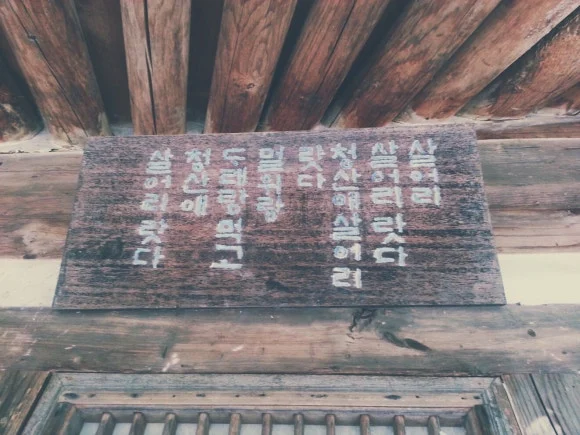 살어리
살어리 랏다
청산애 살어리
랏다
멀위랑
ᄃᆞ래랑 먹고
청산애
살어리 랏다